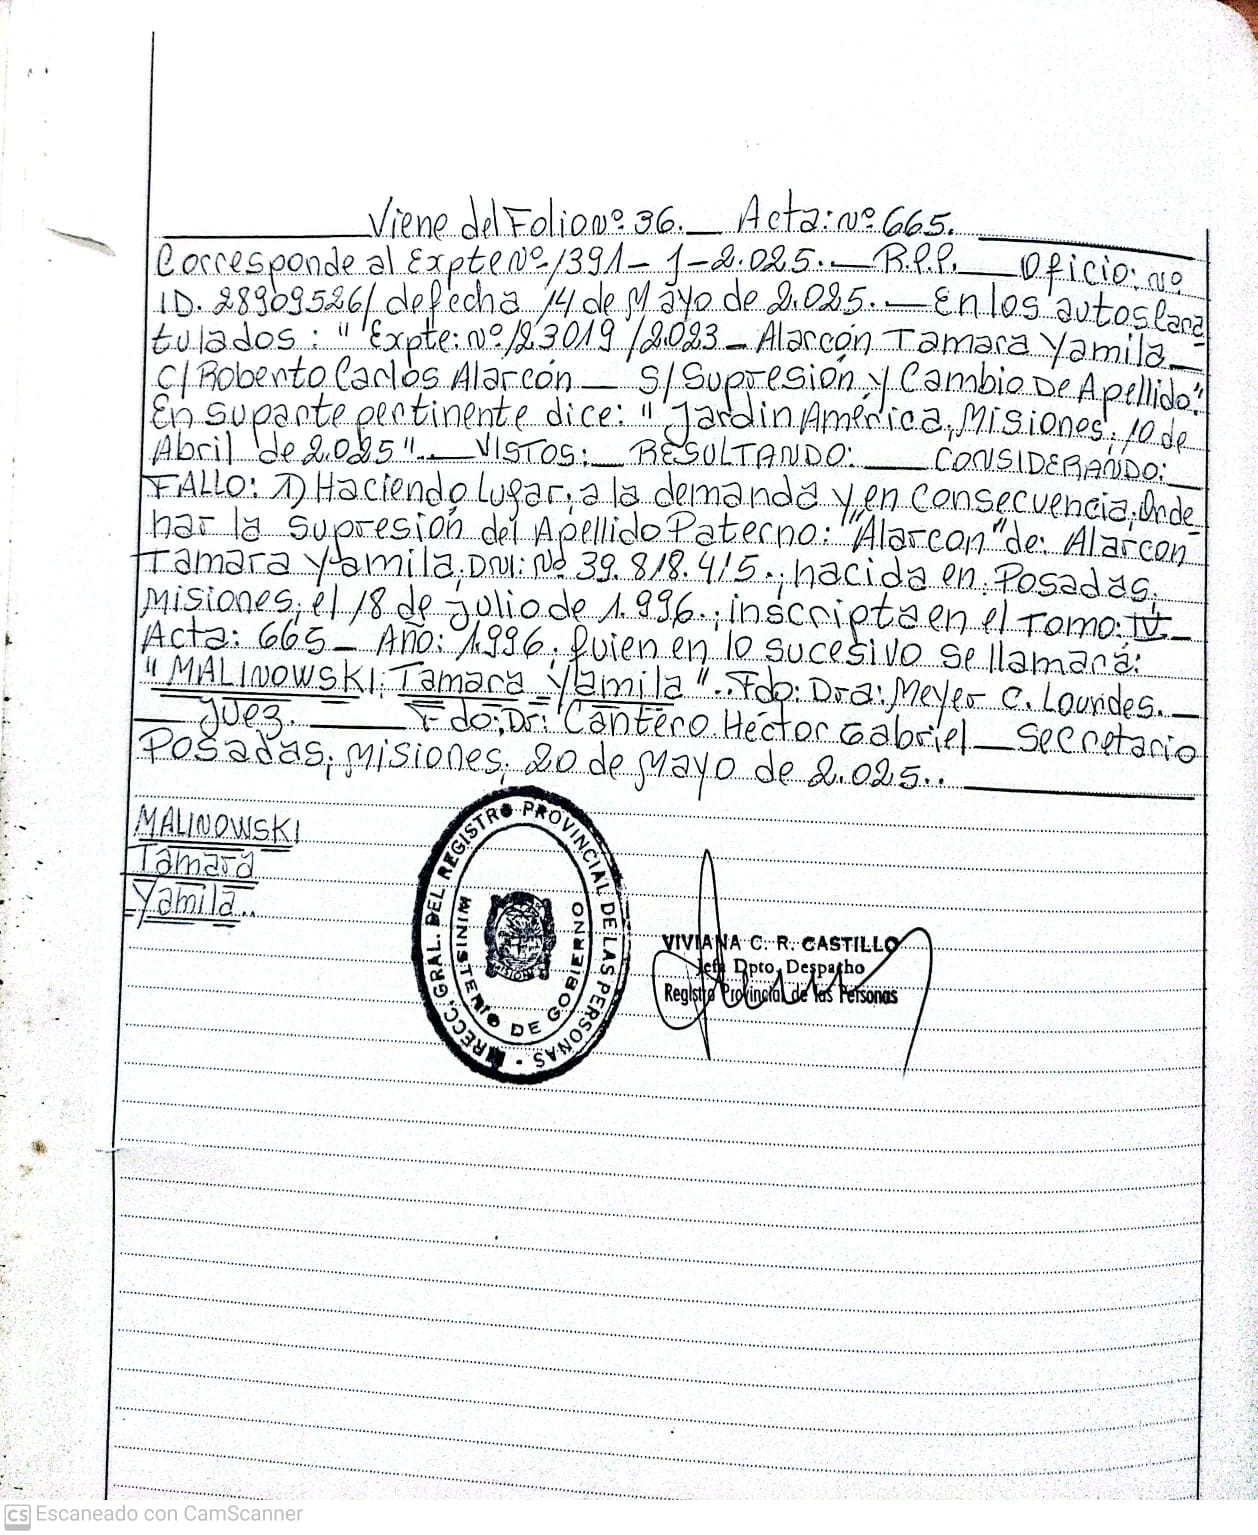 Viene del Folio nº: 36.__ Acta: nº 665.
Corresponde al Expte Nº/391-1-2.025.__ R.P.P.__ Oficio: nº
ID. 28909526/ de fecha 14 de Mayo de 2.025.__ En los autos Cara
tulados: "Expte: nº 123019/2023_ Alarcón Tamara Yamila_
C/ Roberto Carlos Alarcón__ S/ Supresión y Cambio De Apellido".
En su parte pertinente dice: "Jardín América, Misiones; 10 de
Abril de 2.025".__ VISTOS:__ RESULTANDO:__ CONSIDERANDO:
FALLO: 1) Haciendo Lugar, a la demanda y en consecuencia, Orde
nar la supresión del Apellido Paterno: "Alarcon" de: Alarcon
Tamara Yamila, DNI: Nº 39.818.415., nacida en Posadas,
Misiones, el 18 de julio de 1.996., inscripta en el Tomo: IV_
Acta: 665_ Año: 1.996. quien en lo sucesivo se llamará:
"MALINOWSKI, Tamara Yamila".. Fdo: Dra: Meyer C. Lourdes.__
__ Juez.__ Fdo: Dr: Cantero Héctor Gabriel__ Secretario
Posadas, Misiones, 20 de Mayo de 2.025..
MALINOWSKI
Tamara
Yamila..
RECC. GRAL. DEL REGISTRO PROVINCIAL DE LAS PERSONAS -
MINISTERIO DE GOBIERNO
VIVIANA C. R. CASTILLO
Jefa Dpto. Despacho
Registro Provincial de las Personas
CS Escaneado con CamScanner